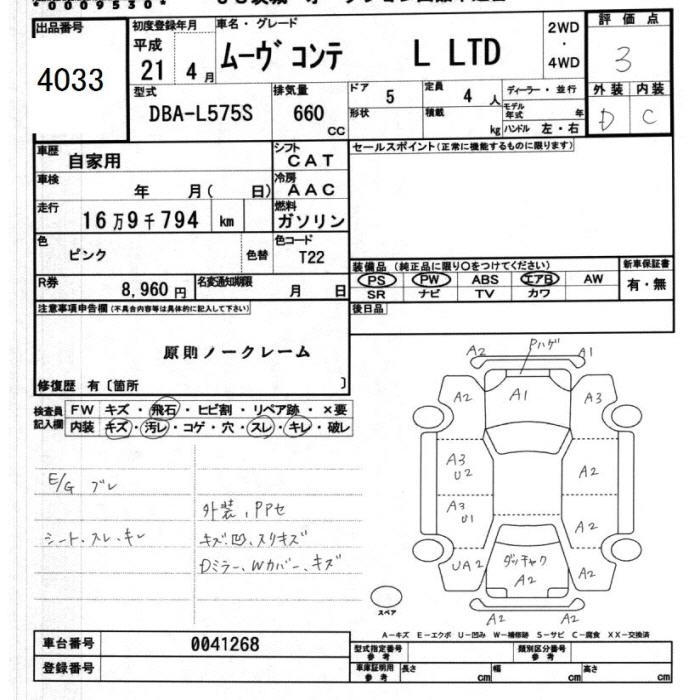 *0009530*
出品番号
4033
初度登録年月
平成
21 4 月
車名・グレード
ムーヴ コンテ L LTD
2WD
・
4WD
評価点
3
外装 内装
D C
型式
DBA-L575S
排気量
660
CC
ドア
5
定員
4 人
形状
積載
kg
ディーラー・並行
モデル年式 年
ハンドル 左・右
車歴
自家用
シフト
CAT
車検
年 月( 日)
冷房
AAC
走行
16万9千794 km
燃料
ガソリン
色
ピンク
色替
色コード
T22
R券
8,960円
名変通知期限
月 日
セールスポイント(正常に機能するものに限ります)
装備品 (純正品に限り〇をつけてください)
新車保証書
PS PW ABS エアB AW
有・無
SR ナビ TV カワ
後日品
注意事項申告欄(不具合内容等は具体的に記入して下さい)
原則ノークレーム
修復歴 有〔箇所 〕
検査員記入欄
FW キズ・飛石・ヒビ割・リペア跡・×要
内装 キズ・汚レ・コゲ・穴・スレ・キレ・破レ
E/G ブレ
外装,PPセ
シート、スレ、キレ
キズ.凹.スリキズ
Dミラー、Wカバー、キズ
A2 Pハゲ A1
A2 A1 A3
A3
U2
A2
A3
U1
A2
UA2 ダッチャク A2
A2
A2 A2
スペア
A−キズ E−エクボ U−凹み W−補修跡 S−サビ C−腐食 XX−交換済
車台番号 0041268
登録番号
型式指定番号
参考
類別区分番号
参考
車庫証明用
参考
長さ cm 幅 cm 高さ cm